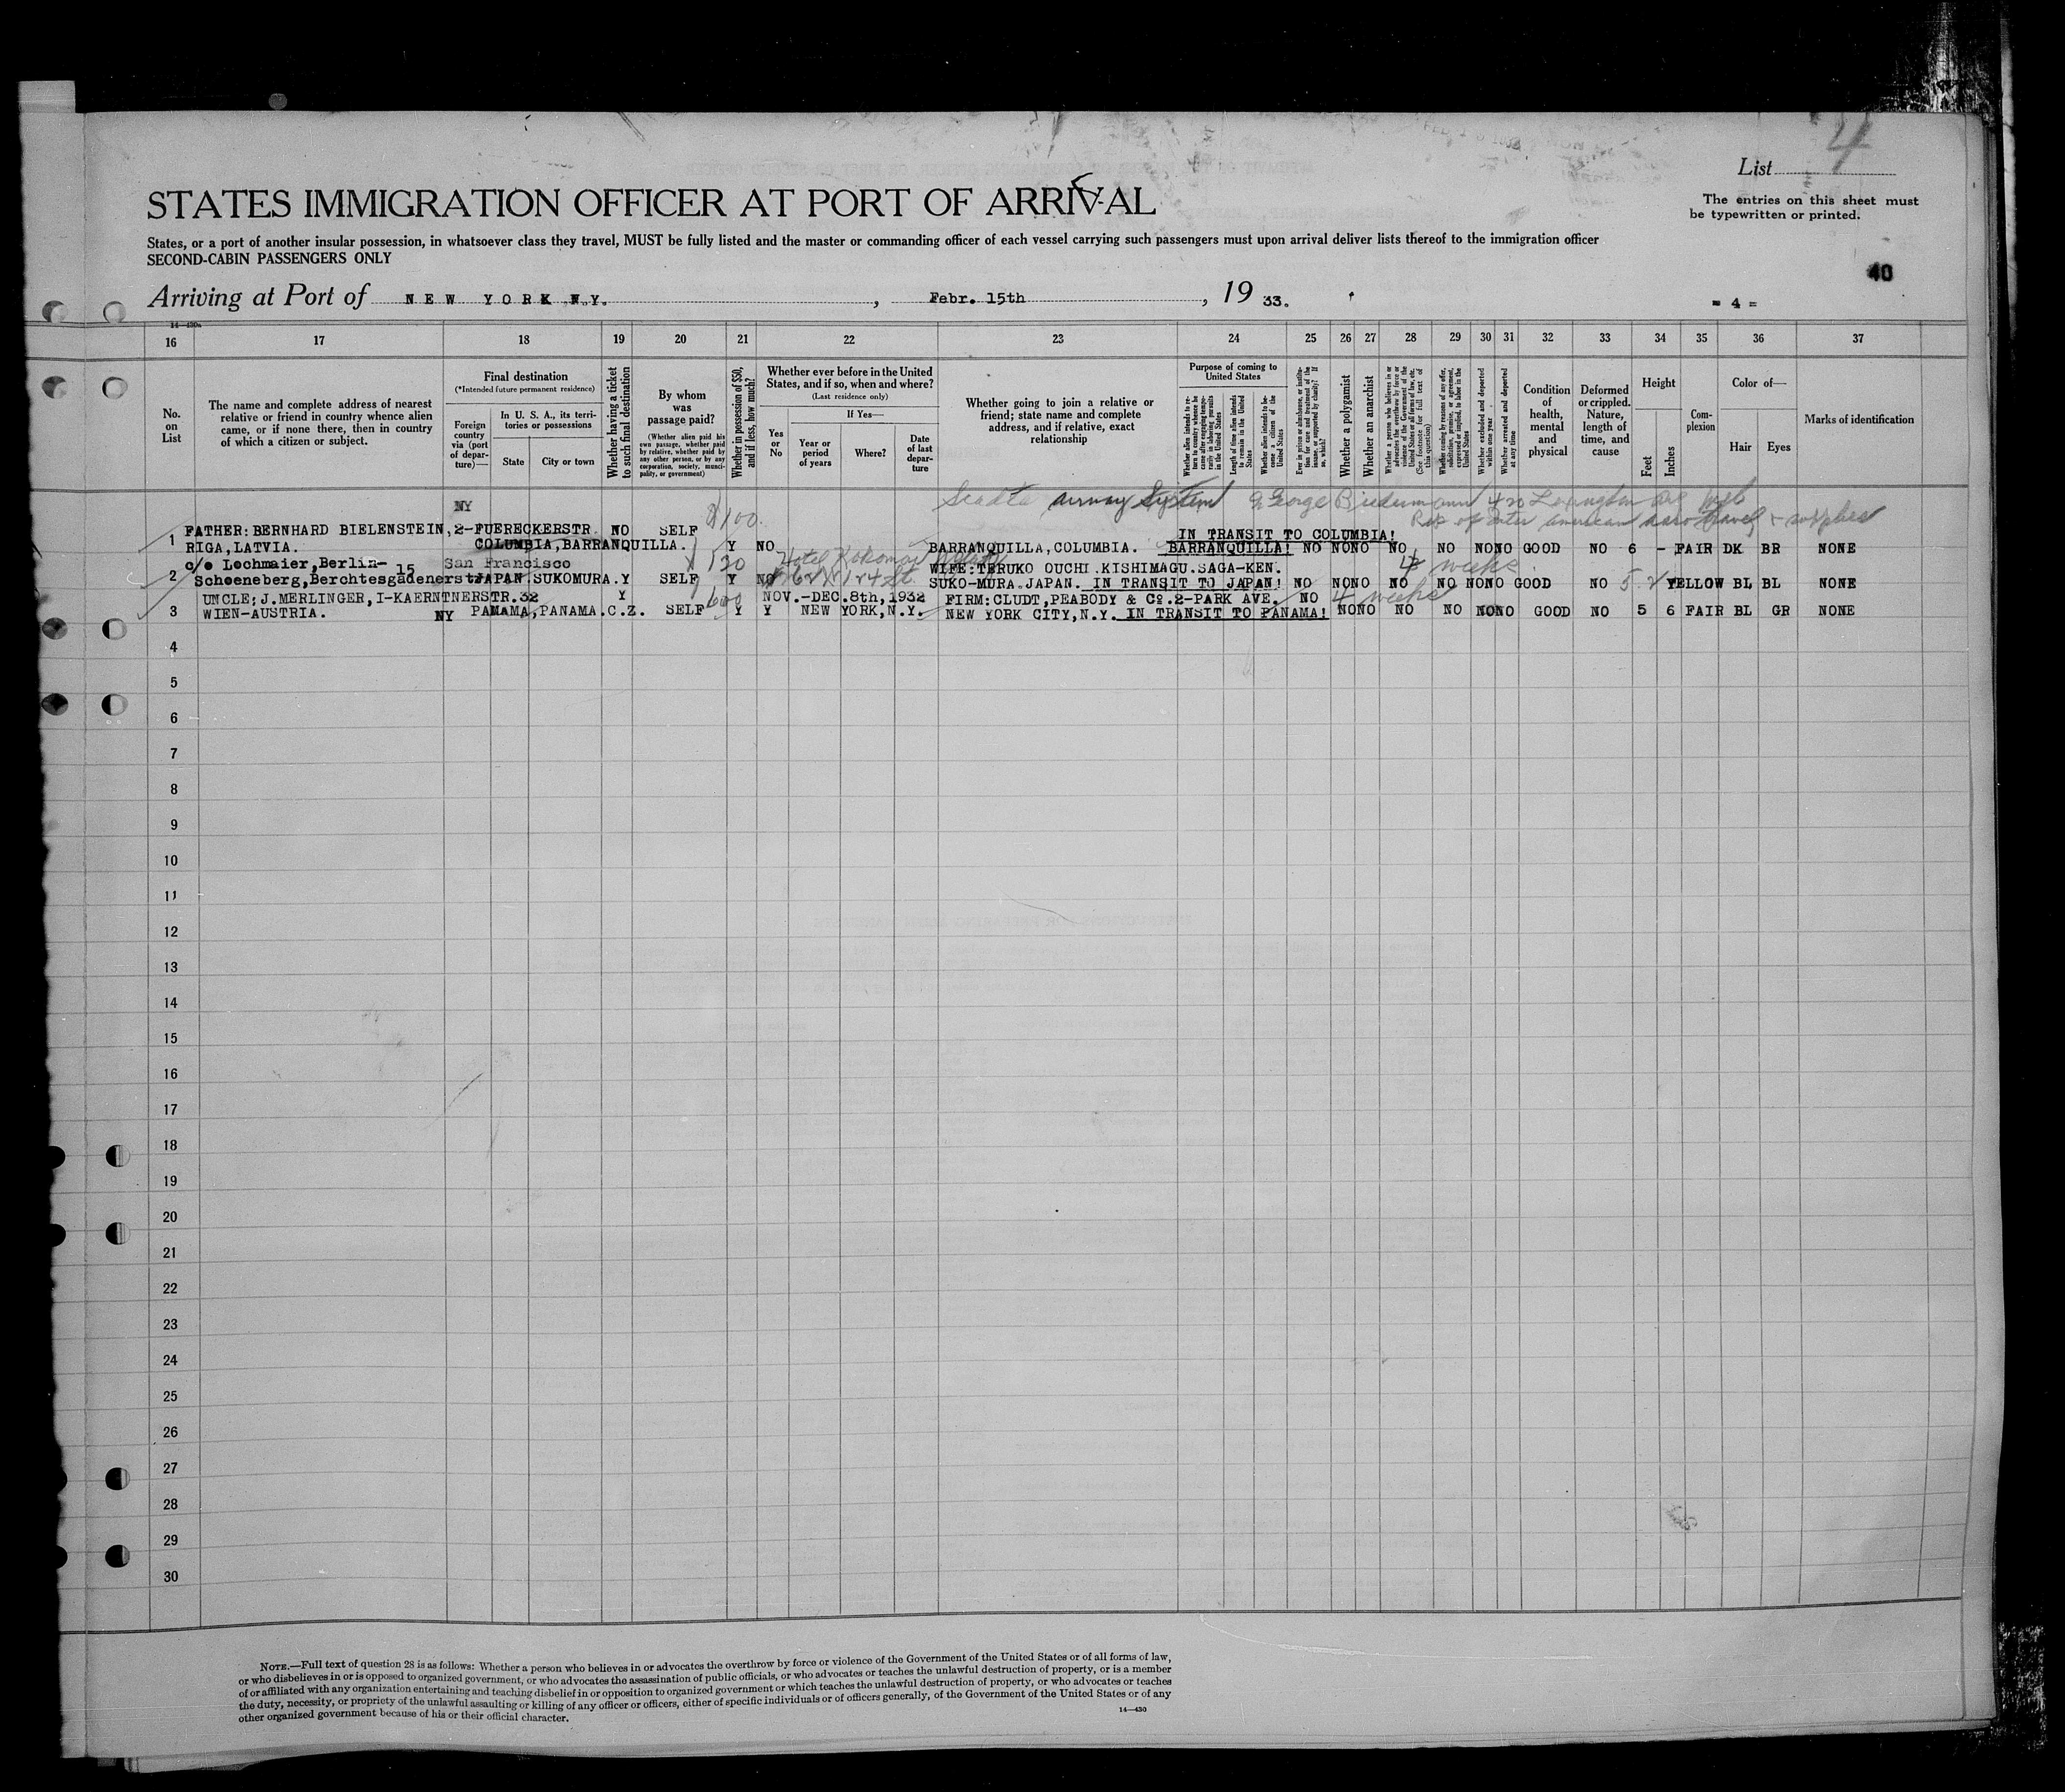 4
List
STATES IMMIGRATION OFFICER AT PORT OF ARRIVAL
The entries on this sheet must
be typewritten or printed.
States, or a port of another insular possession, in whatsoever class they travel, MUST be fully listed and the master or commanding officer of each vessel carrying such passengers must upon arrival deliver lists thereof to the immigration officer
SECOND-CABIN PASSENGERS ONLY
40
Arriving at Port of NEW YORK N.Y. , Febr. 15th , 19 33.
= 4 =
14—430a
16 17 18 19 20 21 22 23 24 25 26 27 28 29 30 31 32 33 34 35 36 37
No. on List
The name and complete address of nearest relative or friend in country whence alien came, or if none there, then in country of which a citizen or subject.
Final destination
(*Intended future permanent residence)
Foreign country via (port of departure)—
In U. S. A., its territories or possessions
State
City or town
Whether having a ticket to such final destination
By whom was passage paid?
(Whether alien paid his own passage, whether paid by relative, whether paid by any other person, or by any corporation, society, municipality, or government)
Whether in possession of $50, and if less, how much?
Whether ever before in the United States, and if so, when and where?
(Last residence only)
Yes or No
If Yes—
Year or period of years
Where?
Date of last departure
Whether going to join a relative or friend; state name and complete address, and if relative, exact relationship
Purpose of coming to United States
Whether alien intends to return to country whence he came after engaging temporarily in laboring pursuits in the United States
Length of time alien intends to remain in the United States
Whether alien intends to become a citizen of the United States
Ever in prison or almshouse, or institution for care and treatment of the insane, or supported by charity? If so, which?
Whether a polygamist
Whether an anarchist
Whether a person who believes in or advocates the overthrow by force or violence of the Government of the United States or all forms of law, etc. (See footnote for full text of this question)
Whether coming by reasons of any offer, solicitation, promise, or agreement, expressed or implied, to labor in the United States
Whether excluded and deported within one year
Whether arrested and deported at any time
Condition of health, mental and physical
Deformed or crippled. Nature, length of time, and cause
Height
Feet
Inches
Complexion
Color of—
Hair
Eyes
Marks of identification
NY
Scadta airway System George Biedermann 420 Lexington Ave NYC
Rep of Inter American aero travel & supplies
$100.
1 FATHER:BERNHARD BIELENSTEIN,2-FUERECKERSTR. NO SELF IN TRANSIT TO COLUMBIA!
RIGA,LATVIA. COLUMBIA,BARRANQUILLA. Y NO BARRANQUILLA,COLUMBIA. BARRANQUILLA! NO NONO NO NO NONO GOOD NO 6 - FAIR DK BR NONE
2 c/o Lochmaier,Berlin- 15 San Francisco 120 WIFE:TERUKO OUCHI.KISHIMAGU.SAGA-KEN. 4 weeks
Schoeneberg,Berchtesgadenerstr JAPAN.SUKOMURA.Y SELF Y NO SUKO-MURA.JAPAN. IN TRANSIT TO JAPAN! NO NONO NO NO NONO GOOD NO 5 2 YELLOW BL BL NONE
3 UNCLE;J.MERLINGER,I-KAERNTNERSTR.32 Y 600 NOV.-DEC.8th,1932 FIRM:CLUDT,PEABODY & Co.2-PARK AVE. NO 4 weeks
WIEN-AUSTRIA. NY PANAMA,PANAMA.C.Z. SELF Y Y NEW YORK,N.Y. NEW YORK CITY,N.Y. IN TRANSIT TO PANAMA! NONO NO NO NONO GOOD NO 5 6 FAIR BL GR NONE
4
5
6
7
8
9
10
11
12
13
14
15
16
17
18
19
20
21
22
23
24
25
26
27
28
29
30
NOTE.—Full text of question 28 is as follows: Whether a person who believes in or advocates the overthrow by force or violence of the Government of the United States or of all forms of law,
or who disbelieves in or is opposed to organized government, or who advocates the assassination of public officials, or who advocates or teaches the unlawful destruction of property, or is a member
of or affiliated with any organization entertaining and teaching disbelief in or opposition to organized government or which teaches the unlawful destruction of property, or who advocates or teaches
the duty, necessity, or propriety of the unlawful assaulting or killing of any officer or officers, either of specific individuals or of officers generally, of the Government of the United States or of any
other organized government because of his or their official character.
14—430